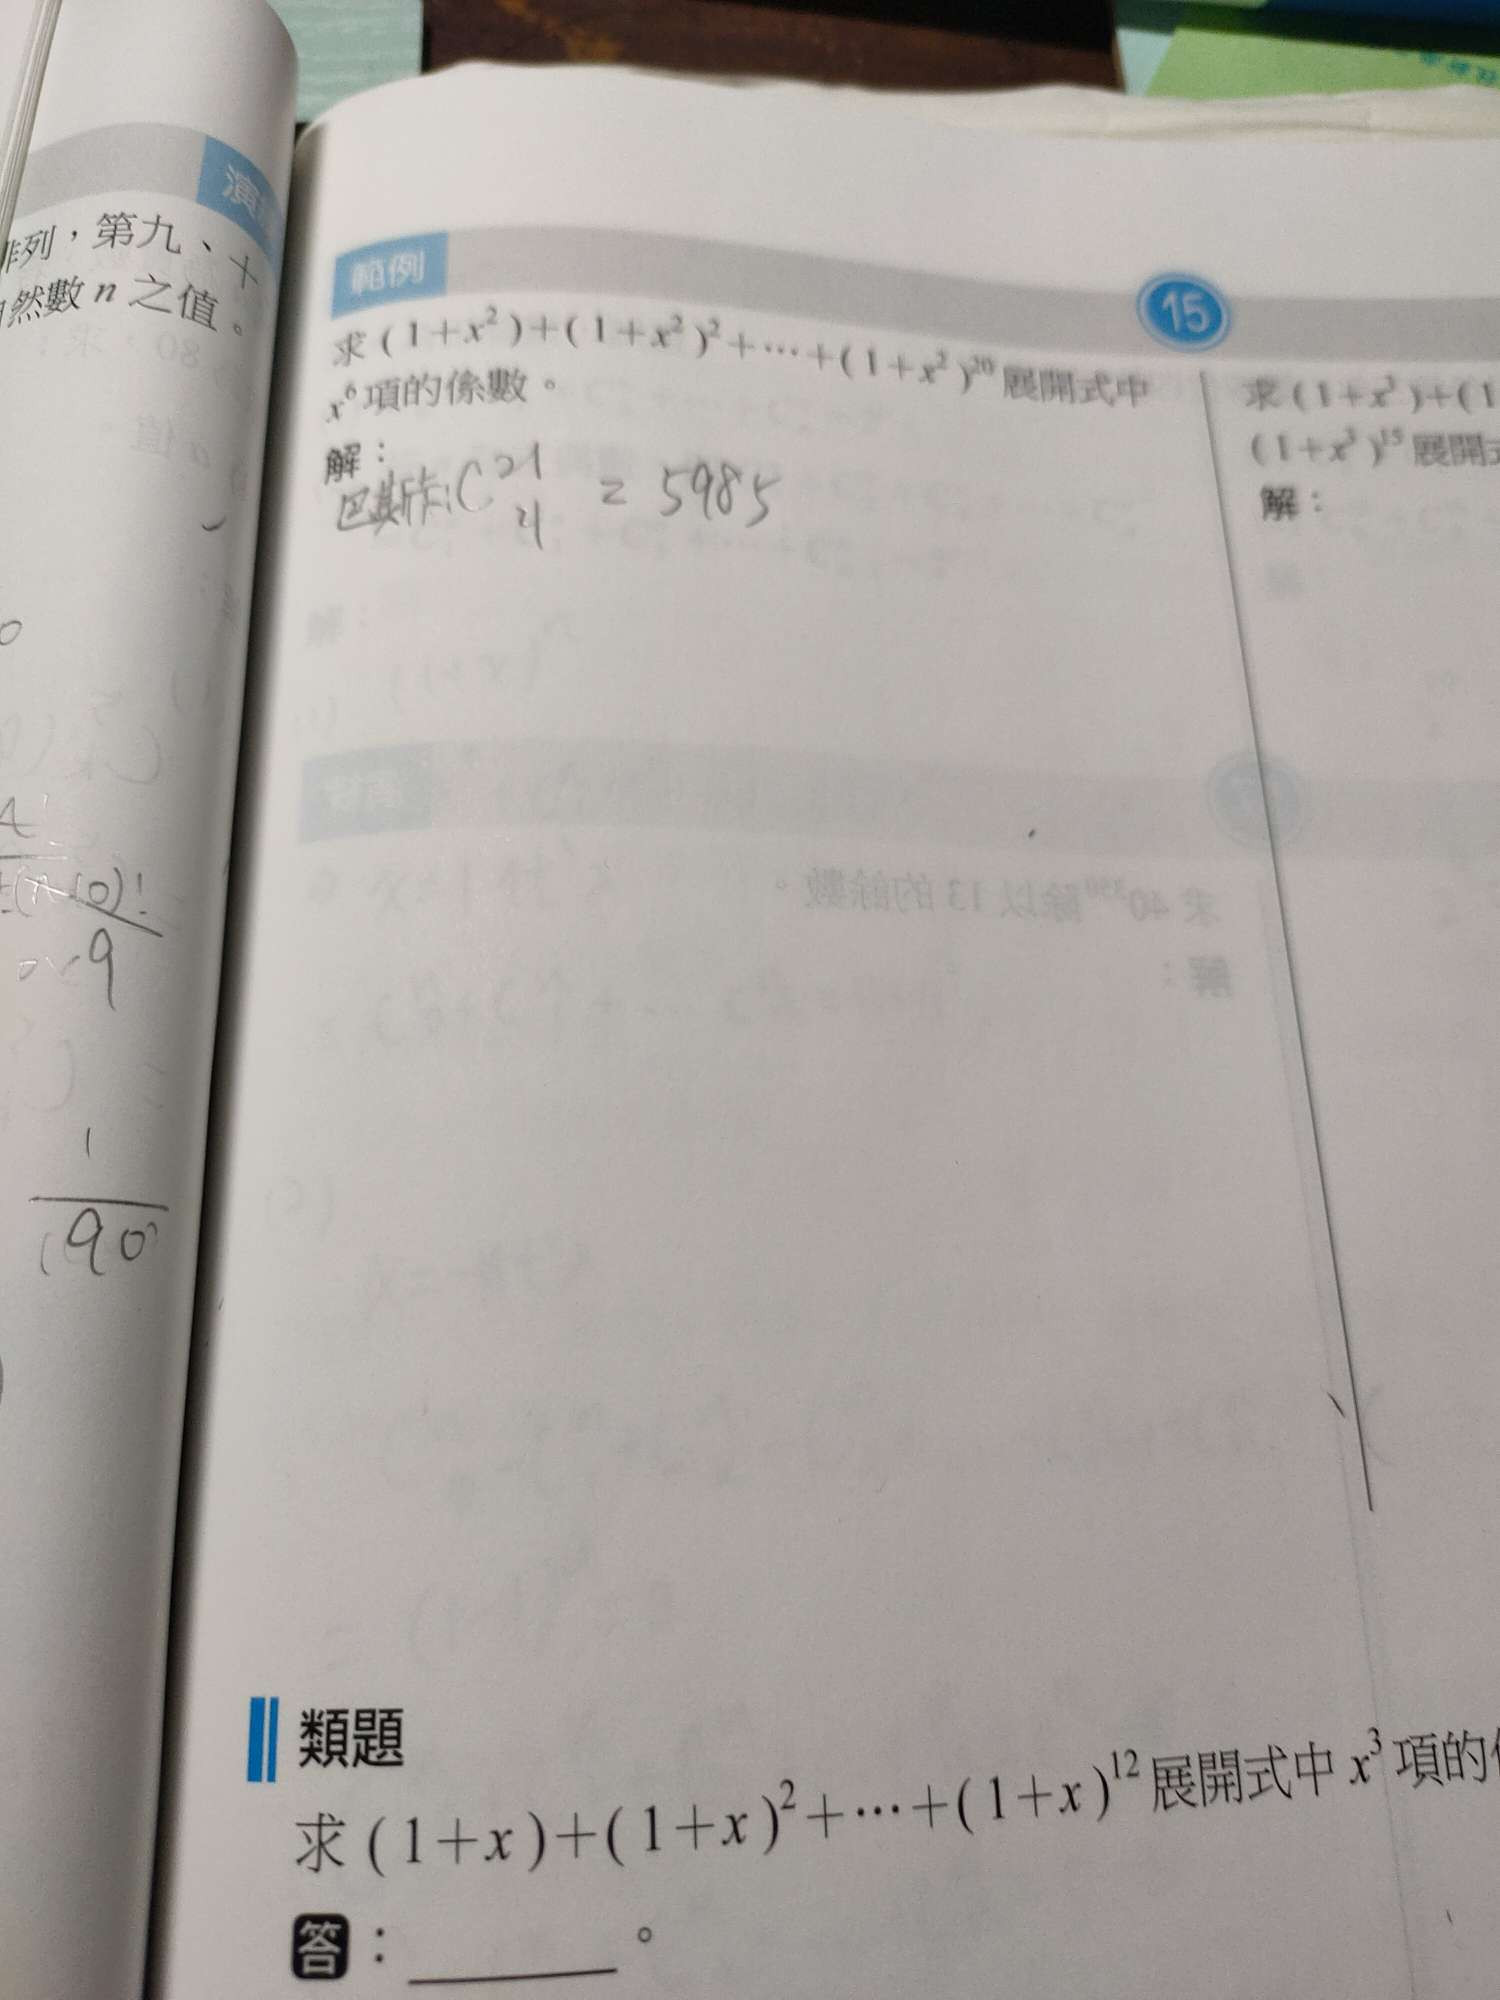 演
排列，第九、十
然數 n 之值。
範例
15
求 (1+x²)+(1+x²)²+⋯+(1+x²)²⁰ 展開式中
x⁶ 項的係數。
解：
巴斯卡: C²¹₄ = 5985
求 (1+x³)+(1
(1+x³)¹⁵ 展開
解：
9
1
190
類題
求 (1+x)+(1+x)²+⋯+(1+x)¹² 展開式中 x³ 項的
答：＿＿＿。